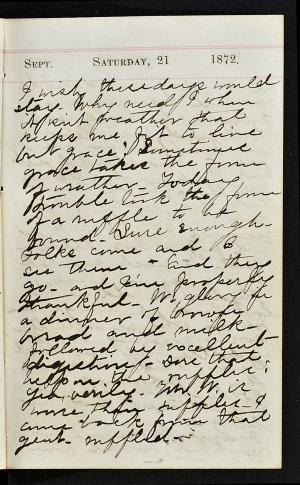 SEPT. SATURDAY, 21 1872.
I wish these days would
stay. Why need I when
it isnt weather that
keeps me. Got to live
but grace; Sometimes
grace takes the form
of weather - Today
trouble took the form
of a ruffle to be
found - Sure enough -
Folks come and I
see them - And they
go - and I'm properly
thankful.
a dinner of
bread and milk
followed by excellent
digestion - Does that
help on the ruffles?
Yea verily. W. is
worse than ruffles - I
came back from that
gent - ruffled -